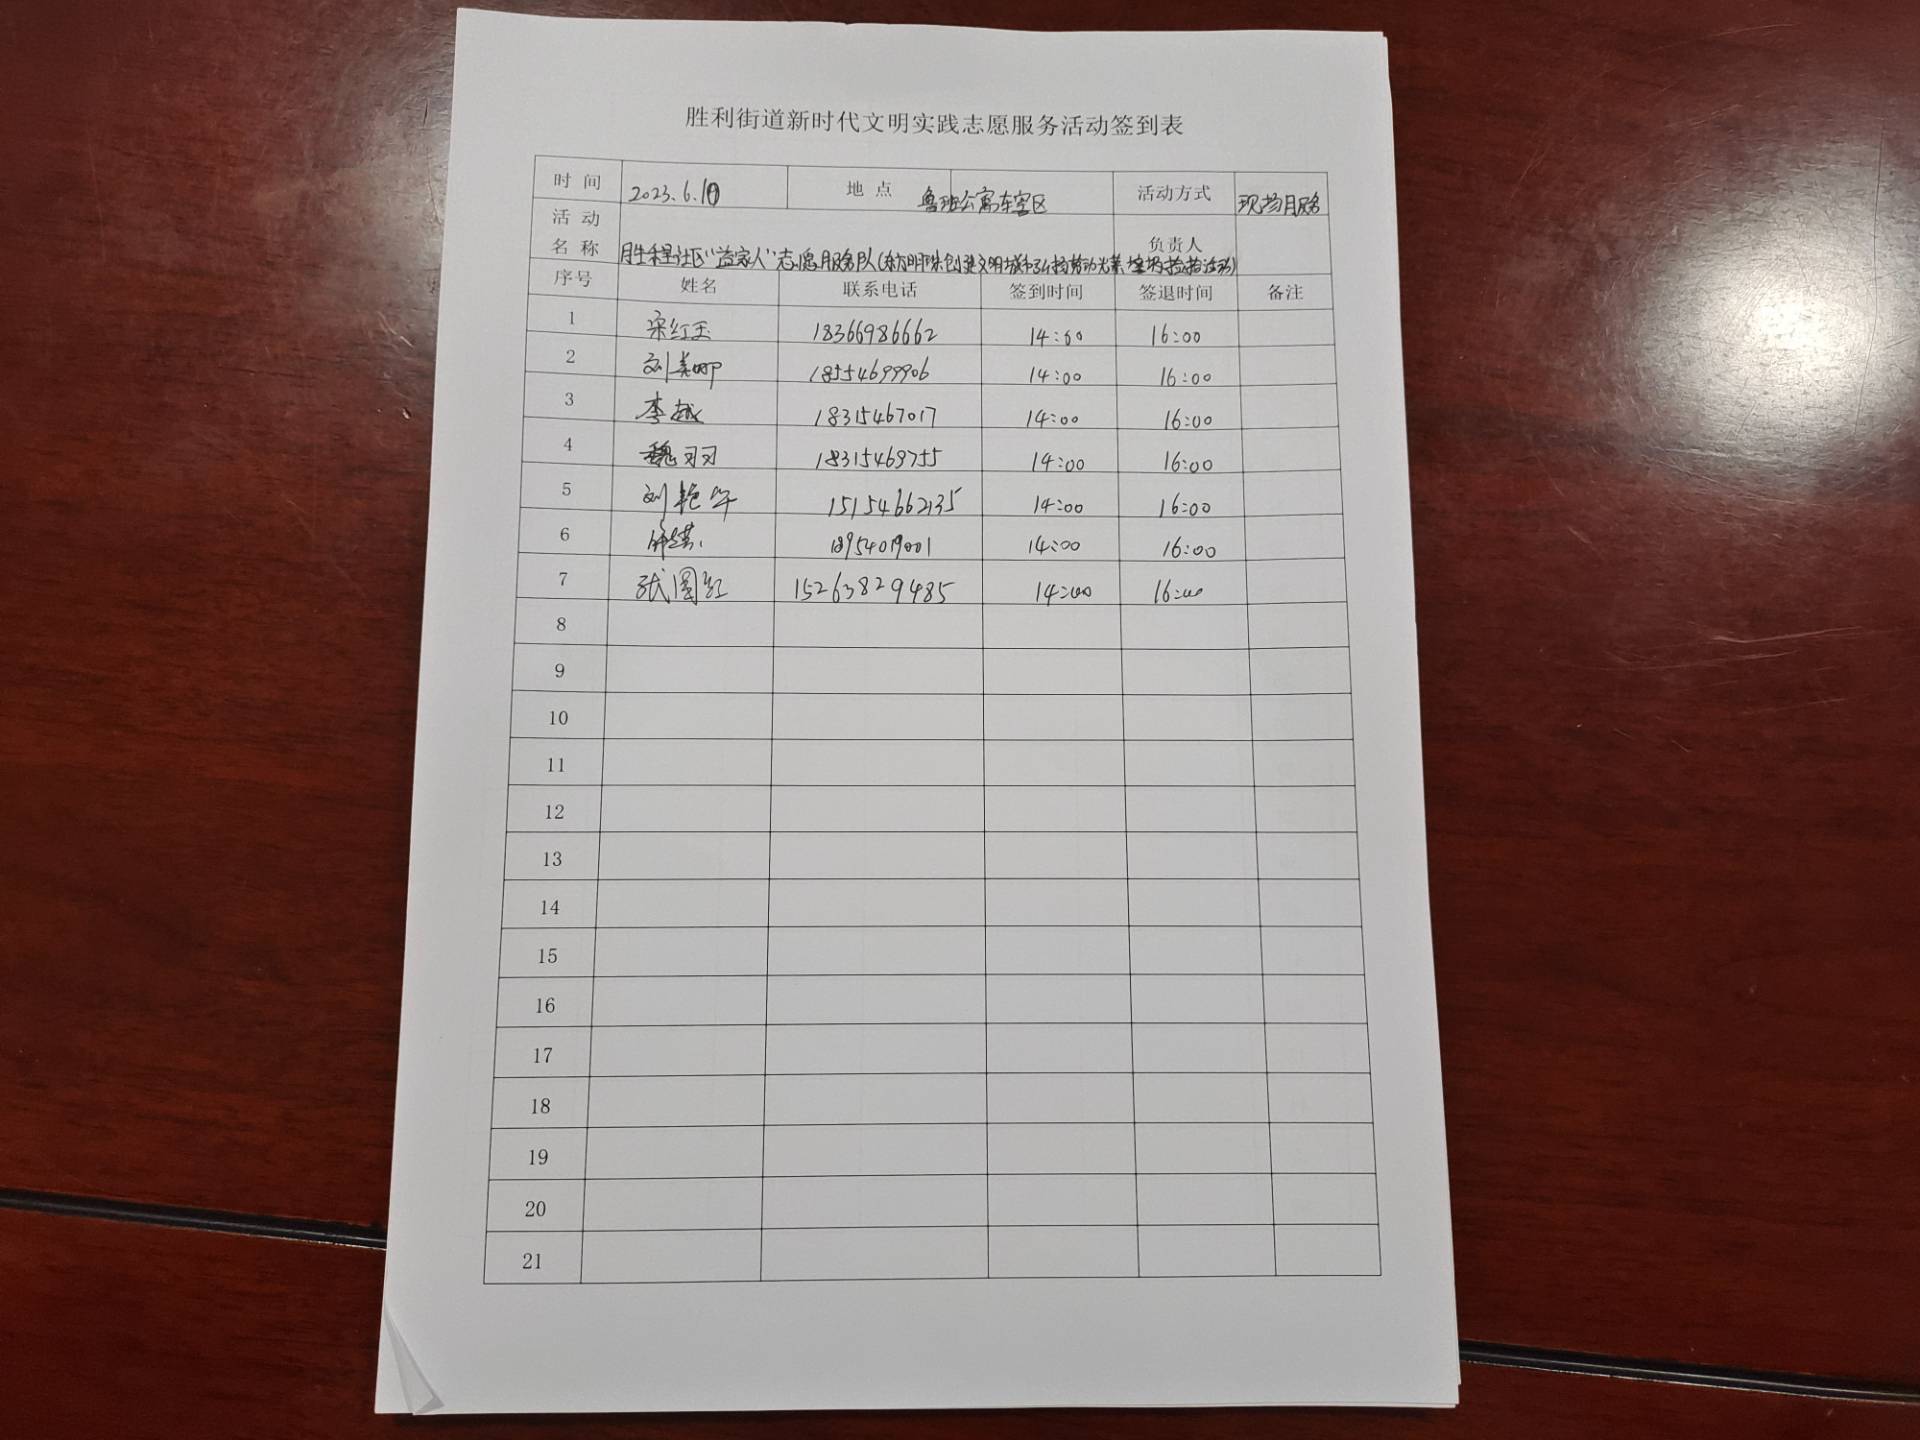 胜利街道新时代文明实践志愿服务活动签到表
时 间 2023.6.10 地 点 鲁班公寓东宫区 活动方式 现场服务
活 动
名 称 胜利社区“益家人”志愿服务队(东方明珠创建文明城市弘扬劳动光荣 捡拾活动) 负责人
序号 姓名 联系电话 签到时间 签退时间 备注
1 宋红玉 18366986662 14:00 16:00
2 刘美娜 18554699906 14:00 16:00
3 李越 18315467017 14:00 16:00
4 魏羽 18315469755 14:00 16:00
5 刘艳华 15154662135 14:00 16:00
6 18954019001 14:00 16:00
7 张国红 15263829485 14:00 16:00
8
9
10
11
12
13
14
15
16
17
18
19
20
21